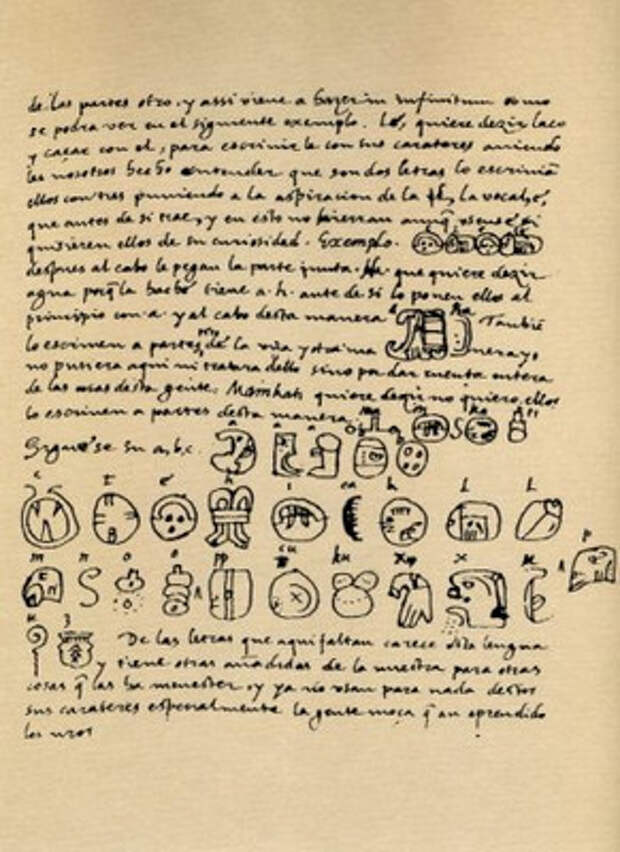 de las partes otro, y assi viene a hazer in infinitum como
se podra ver en el siguiente exemplo. Lé, quiere dezir laço
y caçar con el, para escrivirle con sus carateres aviendo
les nosotros hecho entender que son dos letras lo escrivian
ellos con tres puniendo a la aspiracion de la l, la vocal é,
que antes de si trae, y en esto no hierran aunq usense, si
quisieren ellos de su curiosidad. Exemplo.
despues al cabo le pegan la parte junta. Ha. que quiere dezir
agua porq la hache tiene a. h. ante de si lo ponen ellos al
principio con a. y al cabo desta manera a ha Tambie
lo escriven a partes de la una y otra manera yo
no pusiera aqui ni tratara dello sino por dar cuenta entera
de las cosas desta gente. Mainkati quiere dezir no quiero, ellos
lo escriven a partes desta manera. ma i n ka ti
Siguese su a, b, c. a a a b b
c t e h i ca k l l
m n o o pp cu ku x x u p
u z De las letras que aqui faltan carece esta lengua
y tiene otras añadidas de la nuestra para otras
cosas q las ha menester, y ya no usan para nada destos
sus carateres especialmente la gente moça q an aprendido
los nros